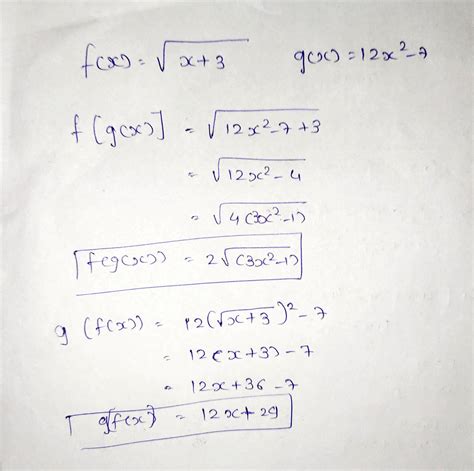 f(x) = √x+3 g(x) = 12x²-7
f[g(x)] = √12x²-7+3
= √12x²-4
= √4(3x²-1)
f(g(x)) = 2√(3x²-1)
g(f(x)) = 12(√x+3)²-7
= 12(x+3)-7
= 12x+36-7
g(f(x) = 12x+29